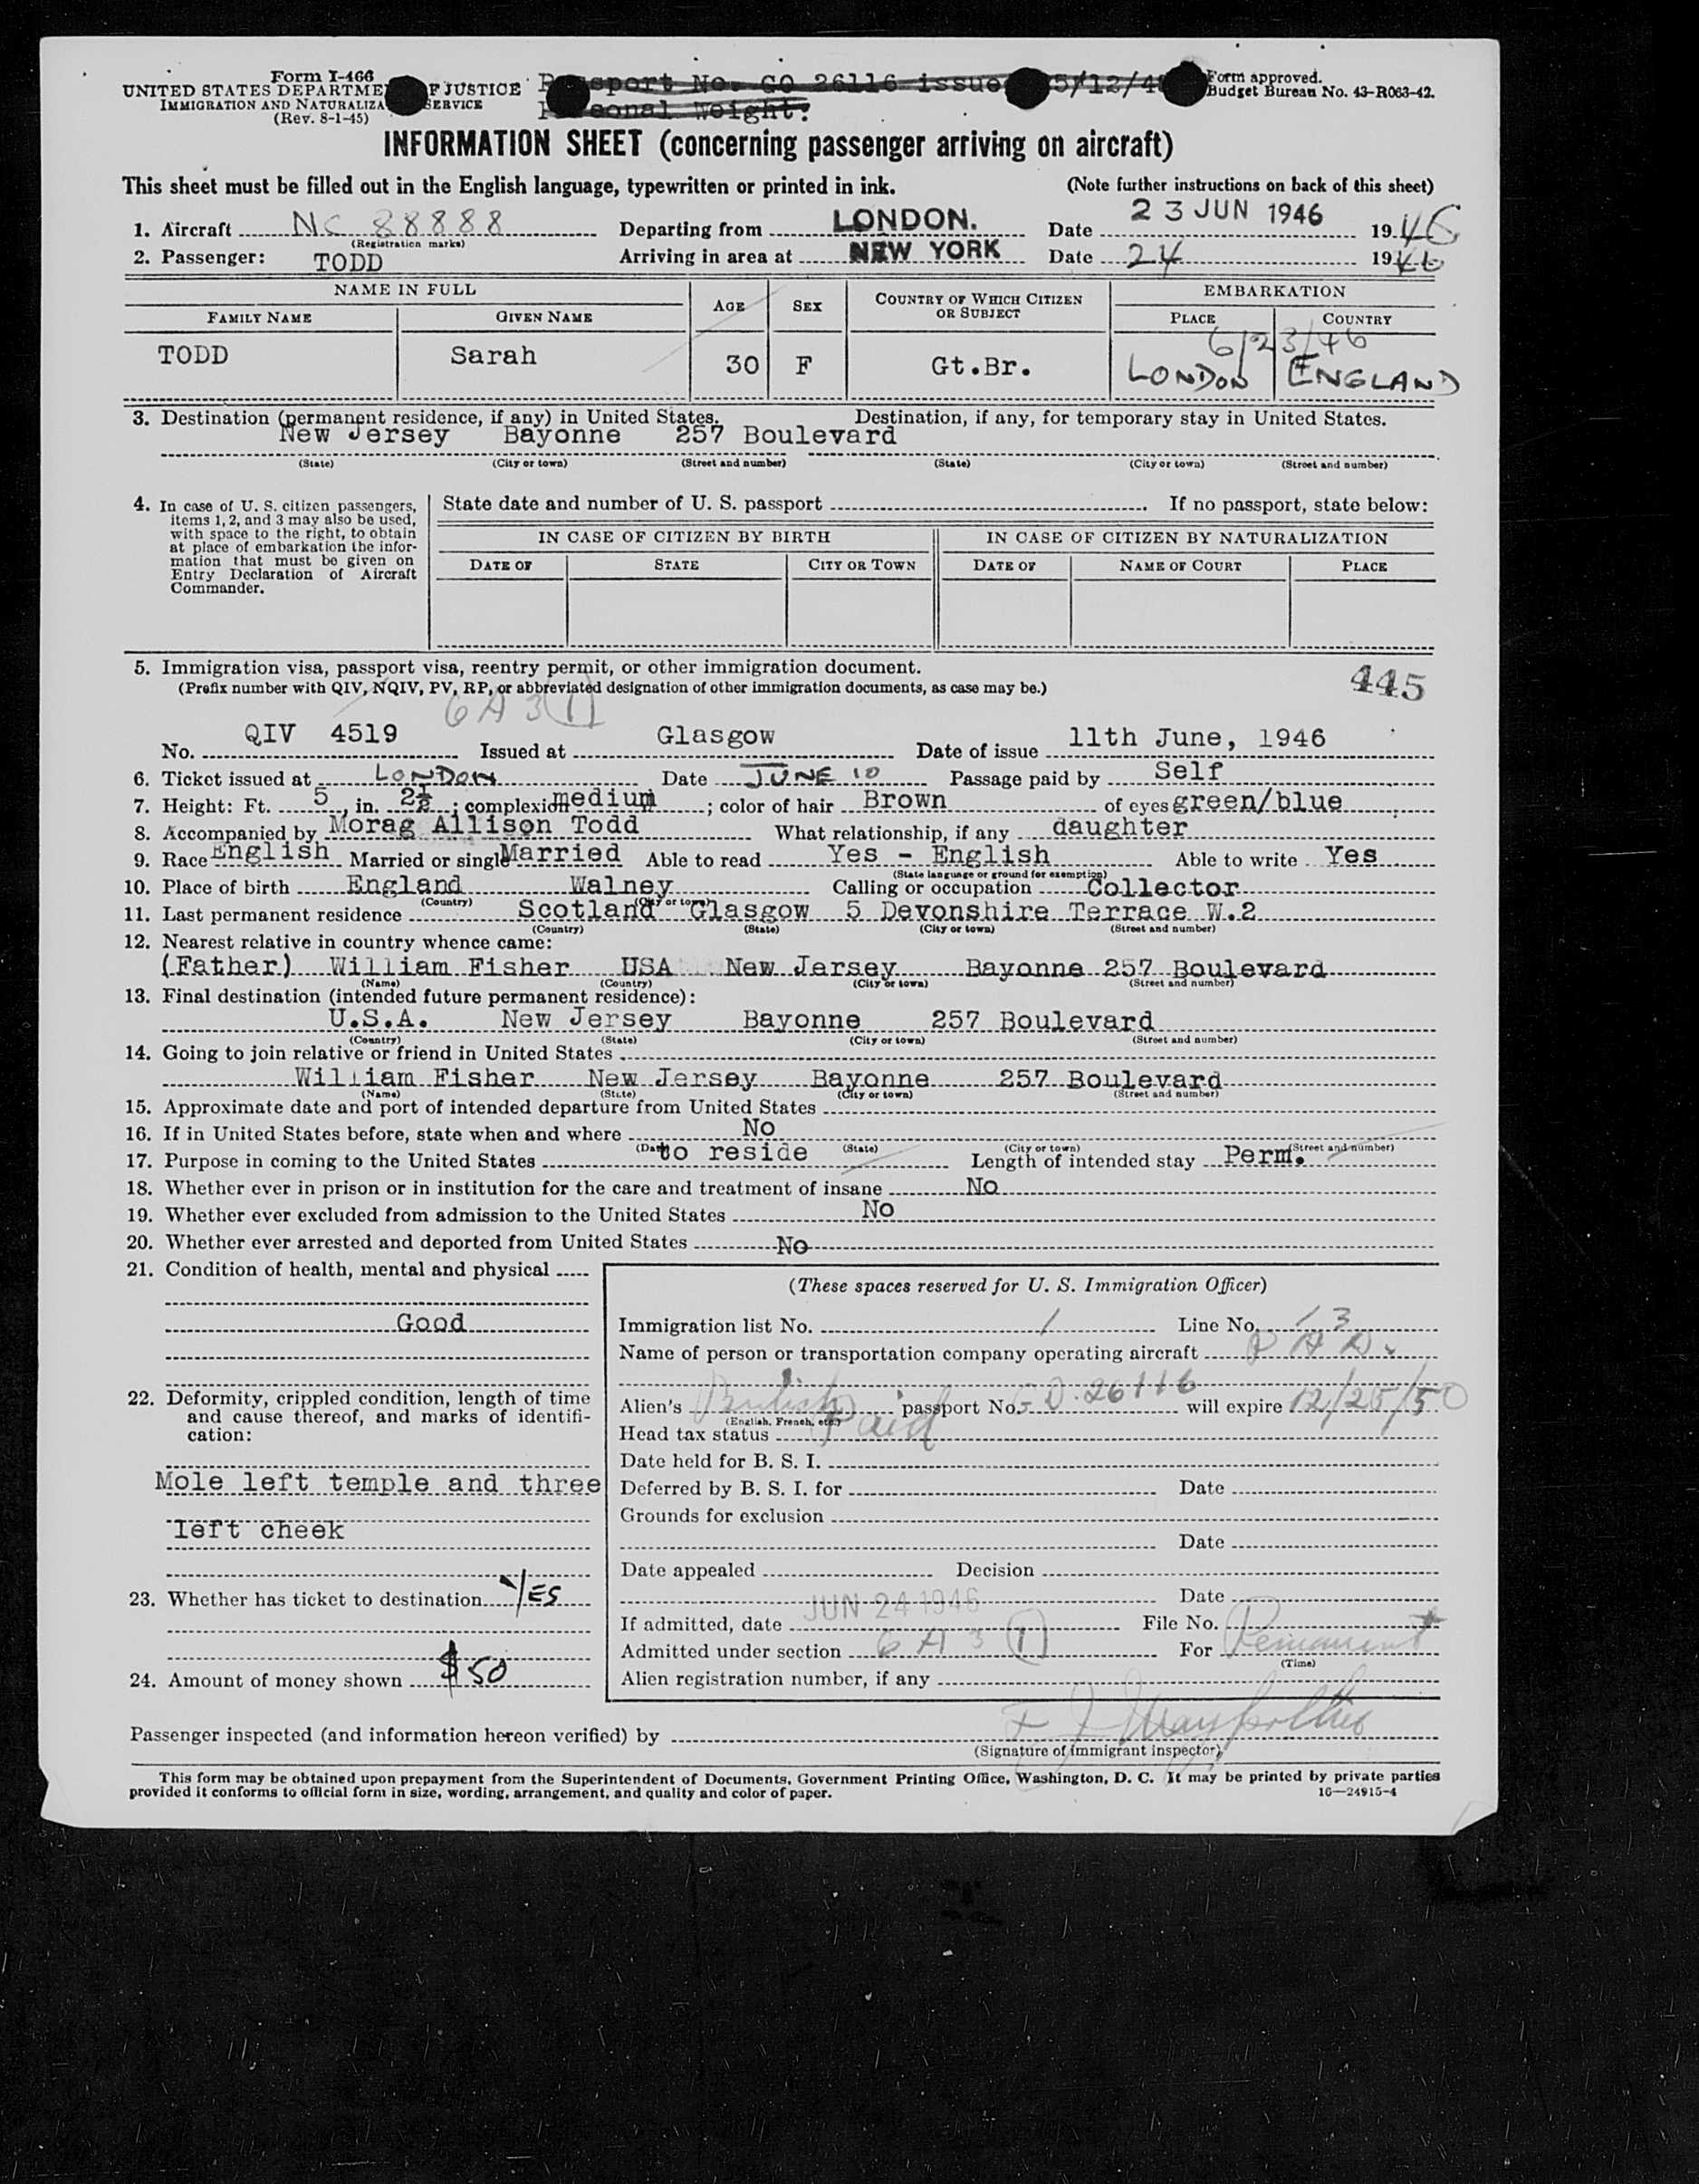 Form I-466
UNITED STATES DEPARTME F JUSTICE
IMMIGRATION AND NATURALIZA SERVICE
(Rev. 8-1-45)
sport No. GO 26116 issue 5/12/4
sonal Weight:
Form approved.
Budget Bureau No. 43-R063-42.
INFORMATION SHEET (concerning passenger arriving on aircraft)
This sheet must be filled out in the English language, typewritten or printed in ink. (Note further instructions on back of this sheet)
1. Aircraft NC 88888 Departing from LONDON. Date 23 JUN 1946 1946
(Registration marks)
2. Passenger: TODD Arriving in area at NEW YORK Date 24 1946
NAME IN FULL AGE SEX COUNTRY OF WHICH CITIZEN OR SUBJECT EMBARKATION
FAMILY NAME GIVEN NAME PLACE COUNTRY
6/23/46
TODD Sarah 30 F Gt.Br. LONDON ENGLAND
3. Destination (permanent residence, if any) in United States. Destination, if any, for temporary stay in United States.
New Jersey Bayonne 257 Boulevard
(State) (City or town) (Street and number) (State) (City or town) (Street and number)
4. In case of U. S. citizen passengers, items 1, 2, and 3 may also be used, with space to the right, to obtain at place of embarkation the infor-mation that must be given on Entry Declaration of Aircraft Commander.
State date and number of U. S. passport If no passport, state below:
IN CASE OF CITIZEN BY BIRTH IN CASE OF CITIZEN BY NATURALIZATION
DATE OF STATE CITY OR TOWN DATE OF NAME OF COURT PLACE
5. Immigration visa, passport visa, reentry permit, or other immigration document. 445
(Prefix number with QIV, NQIV, PV, RP, or abbreviated designation of other immigration documents, as case may be.)
6 A 3 (1)
No. QIV 4519 Issued at Glasgow Date of issue 11th June, 1946
6. Ticket issued at LONDON Date JUNE 10 Passage paid by Self
7. Height: Ft. 5, in. 2½; complexion medium; color of hair Brown of eyes green/blue
8. Accompanied by Morag Allison Todd What relationship, if any daughter
9. Race English Married or single Married Able to read Yes - English Able to write Yes
(State language or ground for exemption)
10. Place of birth England Walney Calling or occupation Collector
(Country) (City or town)
11. Last permanent residence Scotland Glasgow 5 Devonshire Terrace W.2
(Country) (State) (City or town) (Street and number)
12. Nearest relative in country whence came:
(Father) William Fisher USA New Jersey Bayonne 257 Boulevard
(Name) (Country) (City or town) (Street and number)
13. Final destination (intended future permanent residence):
U.S.A. New Jersey Bayonne 257 Boulevard
(Country) (State) (City or town) (Street and number)
14. Going to join relative or friend in United States
William Fisher New Jersey Bayonne 257 Boulevard
(Name) (State) (City or town) (Street and number)
15. Approximate date and port of intended departure from United States
16. If in United States before, state when and where No
(Date) (State) (City or town) (Street and number)
17. Purpose in coming to the United States to reside Length of intended stay Perm.
18. Whether ever in prison or in institution for the care and treatment of insane No
19. Whether ever excluded from admission to the United States No
20. Whether ever arrested and deported from United States No
21. Condition of health, mental and physical
Good
22. Deformity, crippled condition, length of time and cause thereof, and marks of identifi-cation:
Mole left temple and three
left cheek
23. Whether has ticket to destination YES
24. Amount of money shown $50
(These spaces reserved for U. S. Immigration Officer)
Immigration list No. 1 Line No. 13
Name of person or transportation company operating aircraft P A A.
Alien's British passport No. GO. 26116 will expire 12/25/50
(English, French, etc.)
Head tax status Paid
Date held for B. S. I.
Deferred by B. S. I. for Date
Grounds for exclusion
Date
Date appealed Decision
Date
If admitted, date JUN 24 1946 File No.
Admitted under section 6 A 3 (1) For Permanent
(Time)
Alien registration number, if any
Passenger inspected (and information hereon verified) by
(Signature of immigrant inspector)
This form may be obtained upon prepayment from the Superintendent of Documents, Government Printing Office, Washington, D. C. It may be printed by private parties
provided it conforms to official form in size, wording, arrangement, and quality and color of paper. 16—24915-4